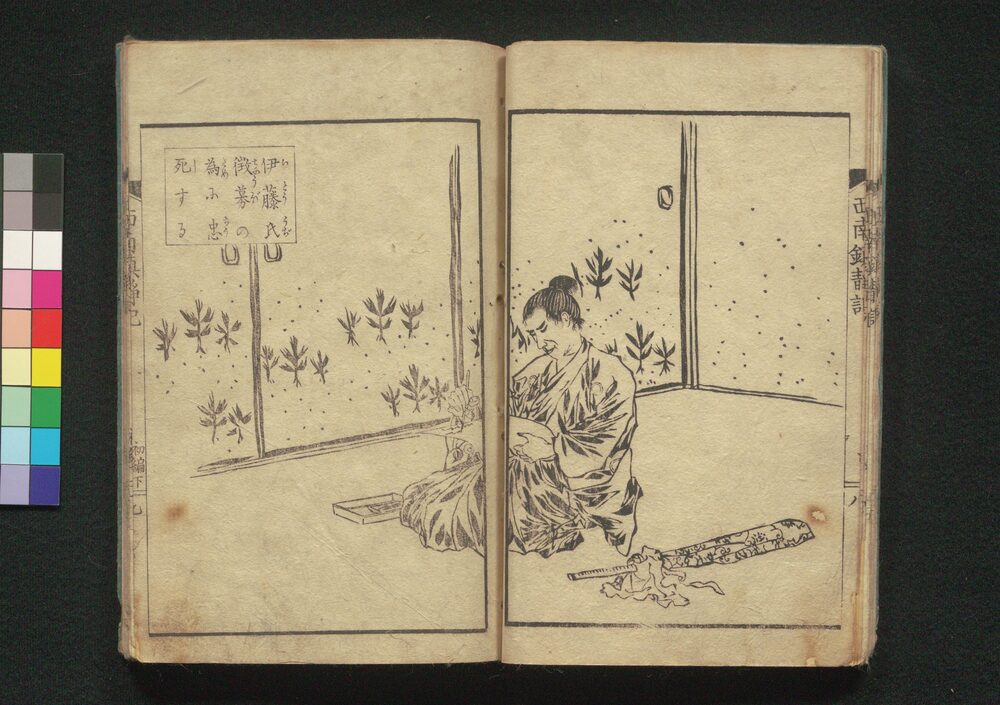 西南鎮静記
八
伊藤氏
徴募の
為に忠
死する
西南鎮静記
初編下
九